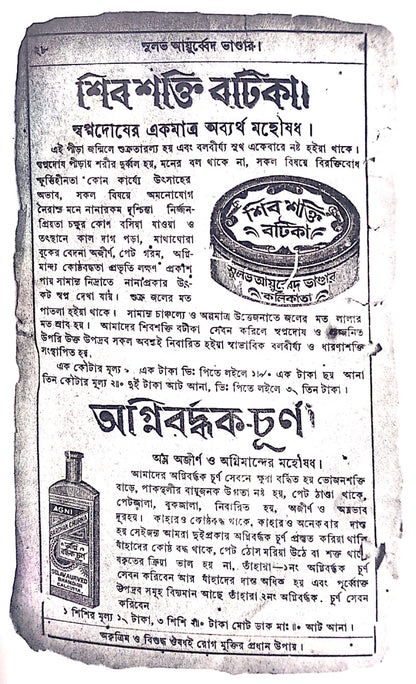 ২৮ সুলভ আয়ুর্ব্বেদ ভাণ্ডার।
শিবশক্তি বটিকা।
স্বপ্নদোষের একমাত্র অব্যর্থ মহৌষধ।
এই পীড়া জন্মিলে শুক্রতারল্য হয় এবং বলবীর্য্য সুখ একেবারে নষ্ট হইয়া থাকে।
স্বপ্নদোষ পীড়ায় শরীর দুর্ব্বল হয়, মনের বল থাকে না, সকল বিষয়ে বিরক্তিবোধ
স্ফূর্ত্তিহীনতা কোন কার্য্যে উৎসাহের
অভাব, সকল বিষয়ে অমনোযোগ
নৈরাশ্য মনে নানারকম দুশ্চিন্তা নির্জ্জন-
প্রিয়তা চক্ষুর কোণ বসিয়া যাওয়া ও
তৎস্থানে কাল দাগ পড়া, মাথাঘোরা
বুকের বেদনা অজীর্ণ, পেট গরম, অগ্নি-
মান্দ্য কোষ্ঠবদ্ধতা প্রভৃতি লক্ষণ প্রকাশ
পায় সামান্য নিদ্রাতে নানাপ্রকার উৎ-
কট স্বপ্ন দেখা যায়। শুক্র জলের মত
শিব শক্তি
বটিকা
সুলভআয়ুর্বেদ ভাণ্ডার
কলিকাতা
পাতলা হইয়া থাকে। সামান্য চাঞ্চল্যে ও অল্পমাত্র উত্তেজনাতে জলের মত লালার
মত স্রাব হয়। আমাদের শিবশক্তি বটীকা সেবন করিলে স্বপ্নদোষ ও তজ্জনিত
উপরি উক্ত উপদ্রব সকল অবশ্যই নিবারিত হইয়া স্বাভাবিক বলবীর্য্য ও ধারণাশক্তি
সংস্থাপিত হয়।
এক কৌটার মূল্য ১৲ এক টাকা ভিঃ পিতে লইলে ১৷৵০ এক টাকা ছয় আনা
তিন কৌটার মূল্য ২৷৷০ দুই টাকা আট আনা, ভিঃ পিতে লইলে ৩৲ তিন টাকা।
অগ্নিবর্দ্ধক-চূর্ণ
অম্ল অজীর্ণ ও অগ্নিমান্দের মহৌষধ।
আমাদের অগ্নিবর্দ্ধক চূর্ণ সেবনে ক্ষুধা বর্দ্ধিত হয় ভোজনশক্তি
বাড়ে, পাকস্থলীর বায়ুজনক উগ্রতা নষ্ট হয়, পেট ঠাণ্ডা থাকে,
পেটজ্বালা, বুকজ্বালা, নিবারিত হয়, অজীর্ণ ও অম্লভাব
দূরহয়। কাহারও কোষ্ঠবদ্ধ থাকে, কাহারও অনেকবার দাস্ত
হয় সেইজন্য আমরা দুইপ্রকার অগ্নিবর্দ্ধক চূর্ণ প্রস্তুত করিয়া থাকি
যাঁহাদের কোষ্ঠ বদ্ধ থাকে, পেট ঠোস মরিয়া উঠে বা শক্ত থাকে
যকৃতের ক্রিয়া ভাল হয় না, তাঁহারা—১নং অগ্নিবর্দ্ধক চূর্ণ
সেবন করিবেন আর যাঁহাদের দাস্ত অধিক হয় এবং পূর্ব্বোক্ত
উপদ্রব সমূহ বিদ্যমান আছে তাঁহারা ২নং অগ্নিবর্দ্ধক চূর্ণ সেবন
করিবেন
AGNI
SULAV AURVED
BHANDAR
CALCUTTA
১ শিশির মূল্য ১৲ টাকা, ৩ শিশি ২৷৷০ টাকা মোট ডাক মাঃ ৷৷০ আট আনা।
অকৃত্রিম ও বিশুদ্ধ ঔষধই রোগ মুক্তির প্রধান উপায়।